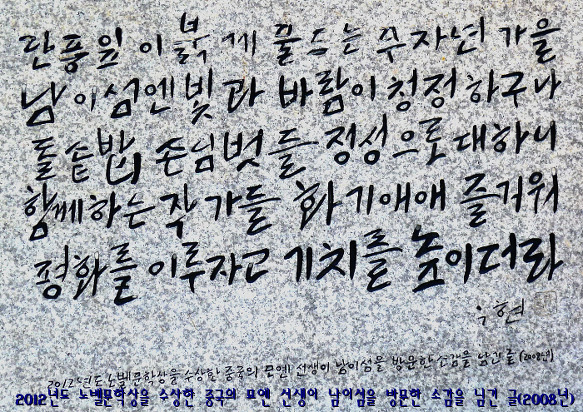 단풍잎 이 붉게 물드는 무자년 가을
남이섬엔 빛과 바람이 청정하구나
돌솥밥에 손님벗들 정성으로 대하니
함께하는 작가들 화기애애 즐거워
평화를 이루자고 기치를 높이더라
우현
2012년도 노벨문학상을 수상한 중국의 모옌 선생이 남이섬을 방문한 소감을 남긴 글 (2008년)
2012년도 노벨문학상을 수상한 중국의 모옌 선생이 남이섬을 방문한 소감을 남긴 글(2008년)